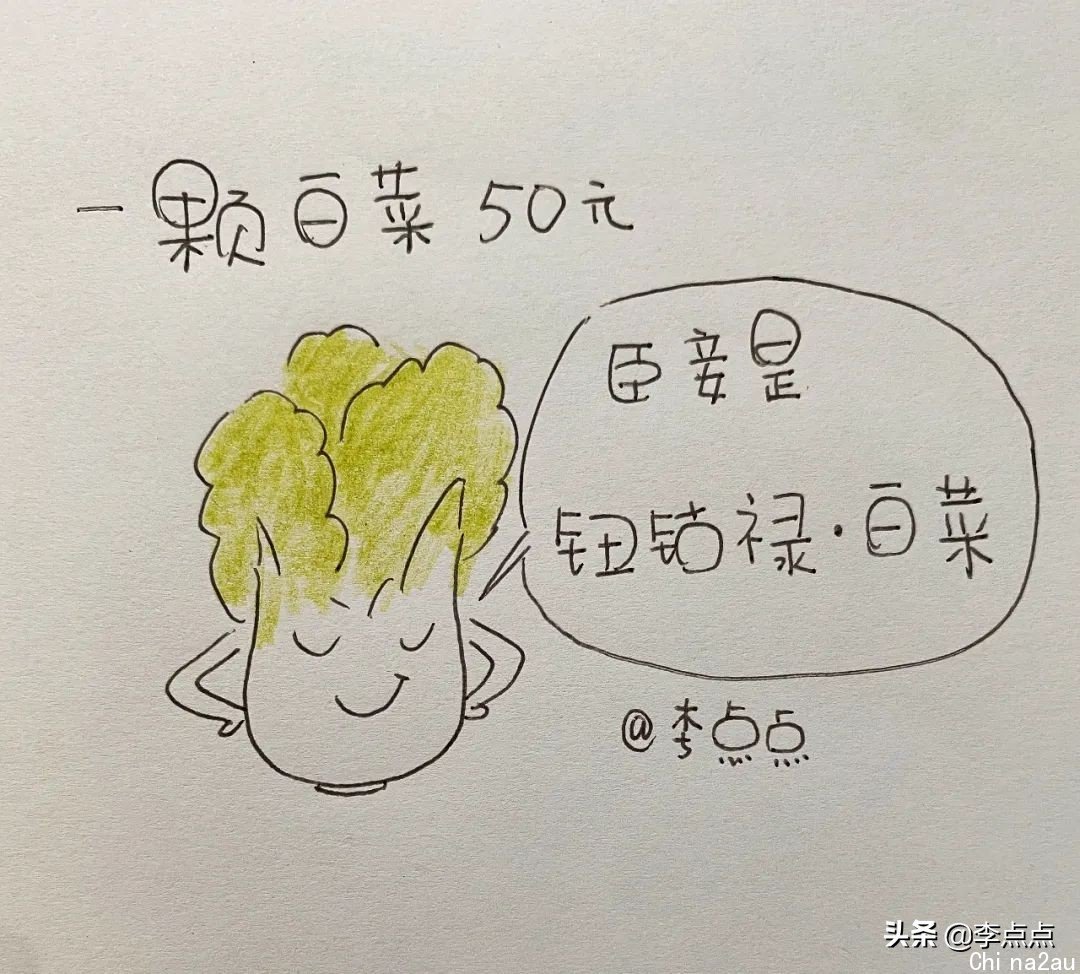 一颗白菜50元
臣妾是
钮钴禄·白菜
@李点点
头条 @李点点
Chi na2au